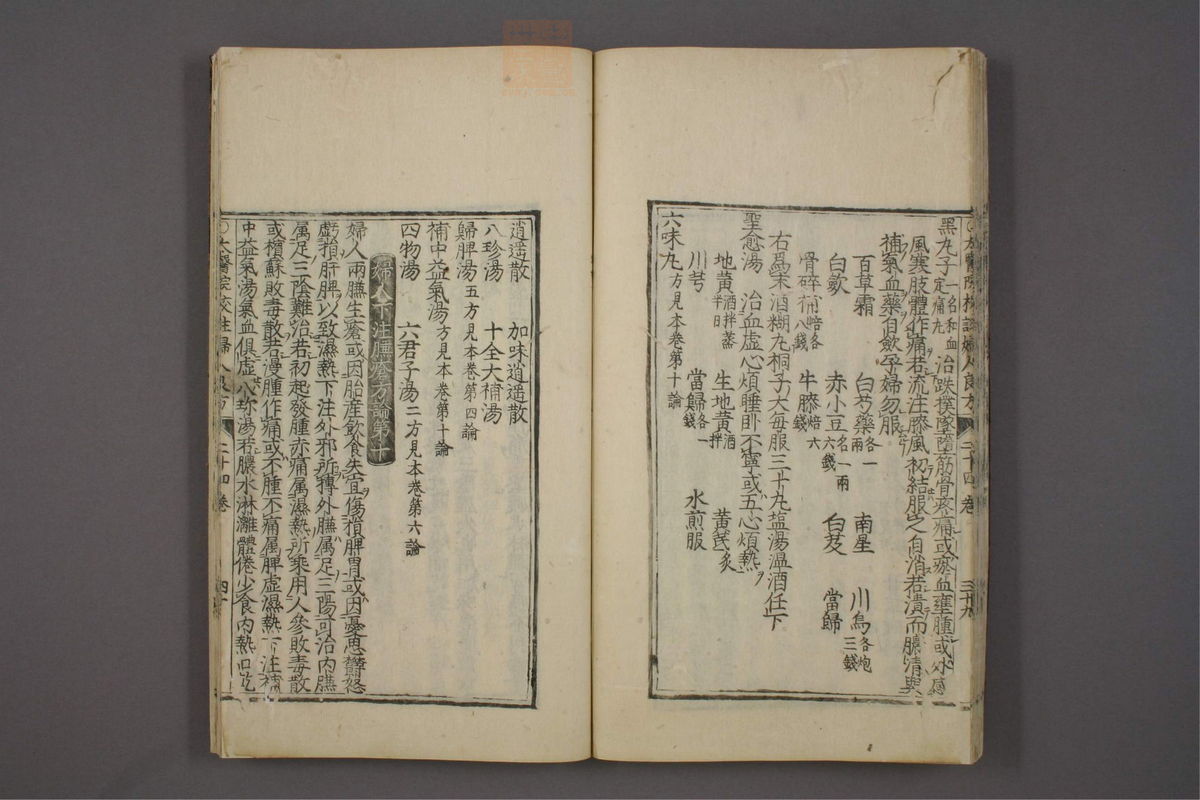 黑丸子一名和血定痛丸治跌撲墜墮筋骨疼痛或瘀血壅腫或外感
風寒肢體作痛若流注膝風初結服之自消若潰而膿清與
補氣血藥自斂孕婦勿服
百草霜 白芍藥各一兩 南星 川烏各炮三錢
白斂 赤小豆各一兩六錢 白芨 當歸
骨碎補焙各八錢 牛膝焙六
右爲末酒糊丸桐子大每服三十丸塩湯温酒任下
聖愈湯 治血虚心煩睡卧不寧或五心煩熱
地黃酒拌蒸半日 生地黃酒拌 黃芪炙
川芎 當歸各一錢 水煎服
六味丸方見本卷第十論
逍遥散 加味逍遥散
八珍湯 十全大補湯
歸脾湯五方見本卷第四論
補中益氣湯方見本卷第十論
四物湯 六君子湯二方見本卷第六論
婦人下注臁瘡方論第十
婦人兩臁生瘡或因胎産飲食失宜傷損脾胃或因憂思鬱怒
虧損肝脾以致濕熱下注外邪所搏外臁属足三陽可治内臁
属足三陰難治若初起發腫赤痛属濕熱所乘用人參敗毒散
或檳蘇敗毒散若漫腫作痛或不腫不痛属脾虚濕熱下注補
中益氣湯氣血俱虚八珍湯若膿水淋漓體倦少食内熱口乾
○太醫院校註婦人良方 二十四卷 四十